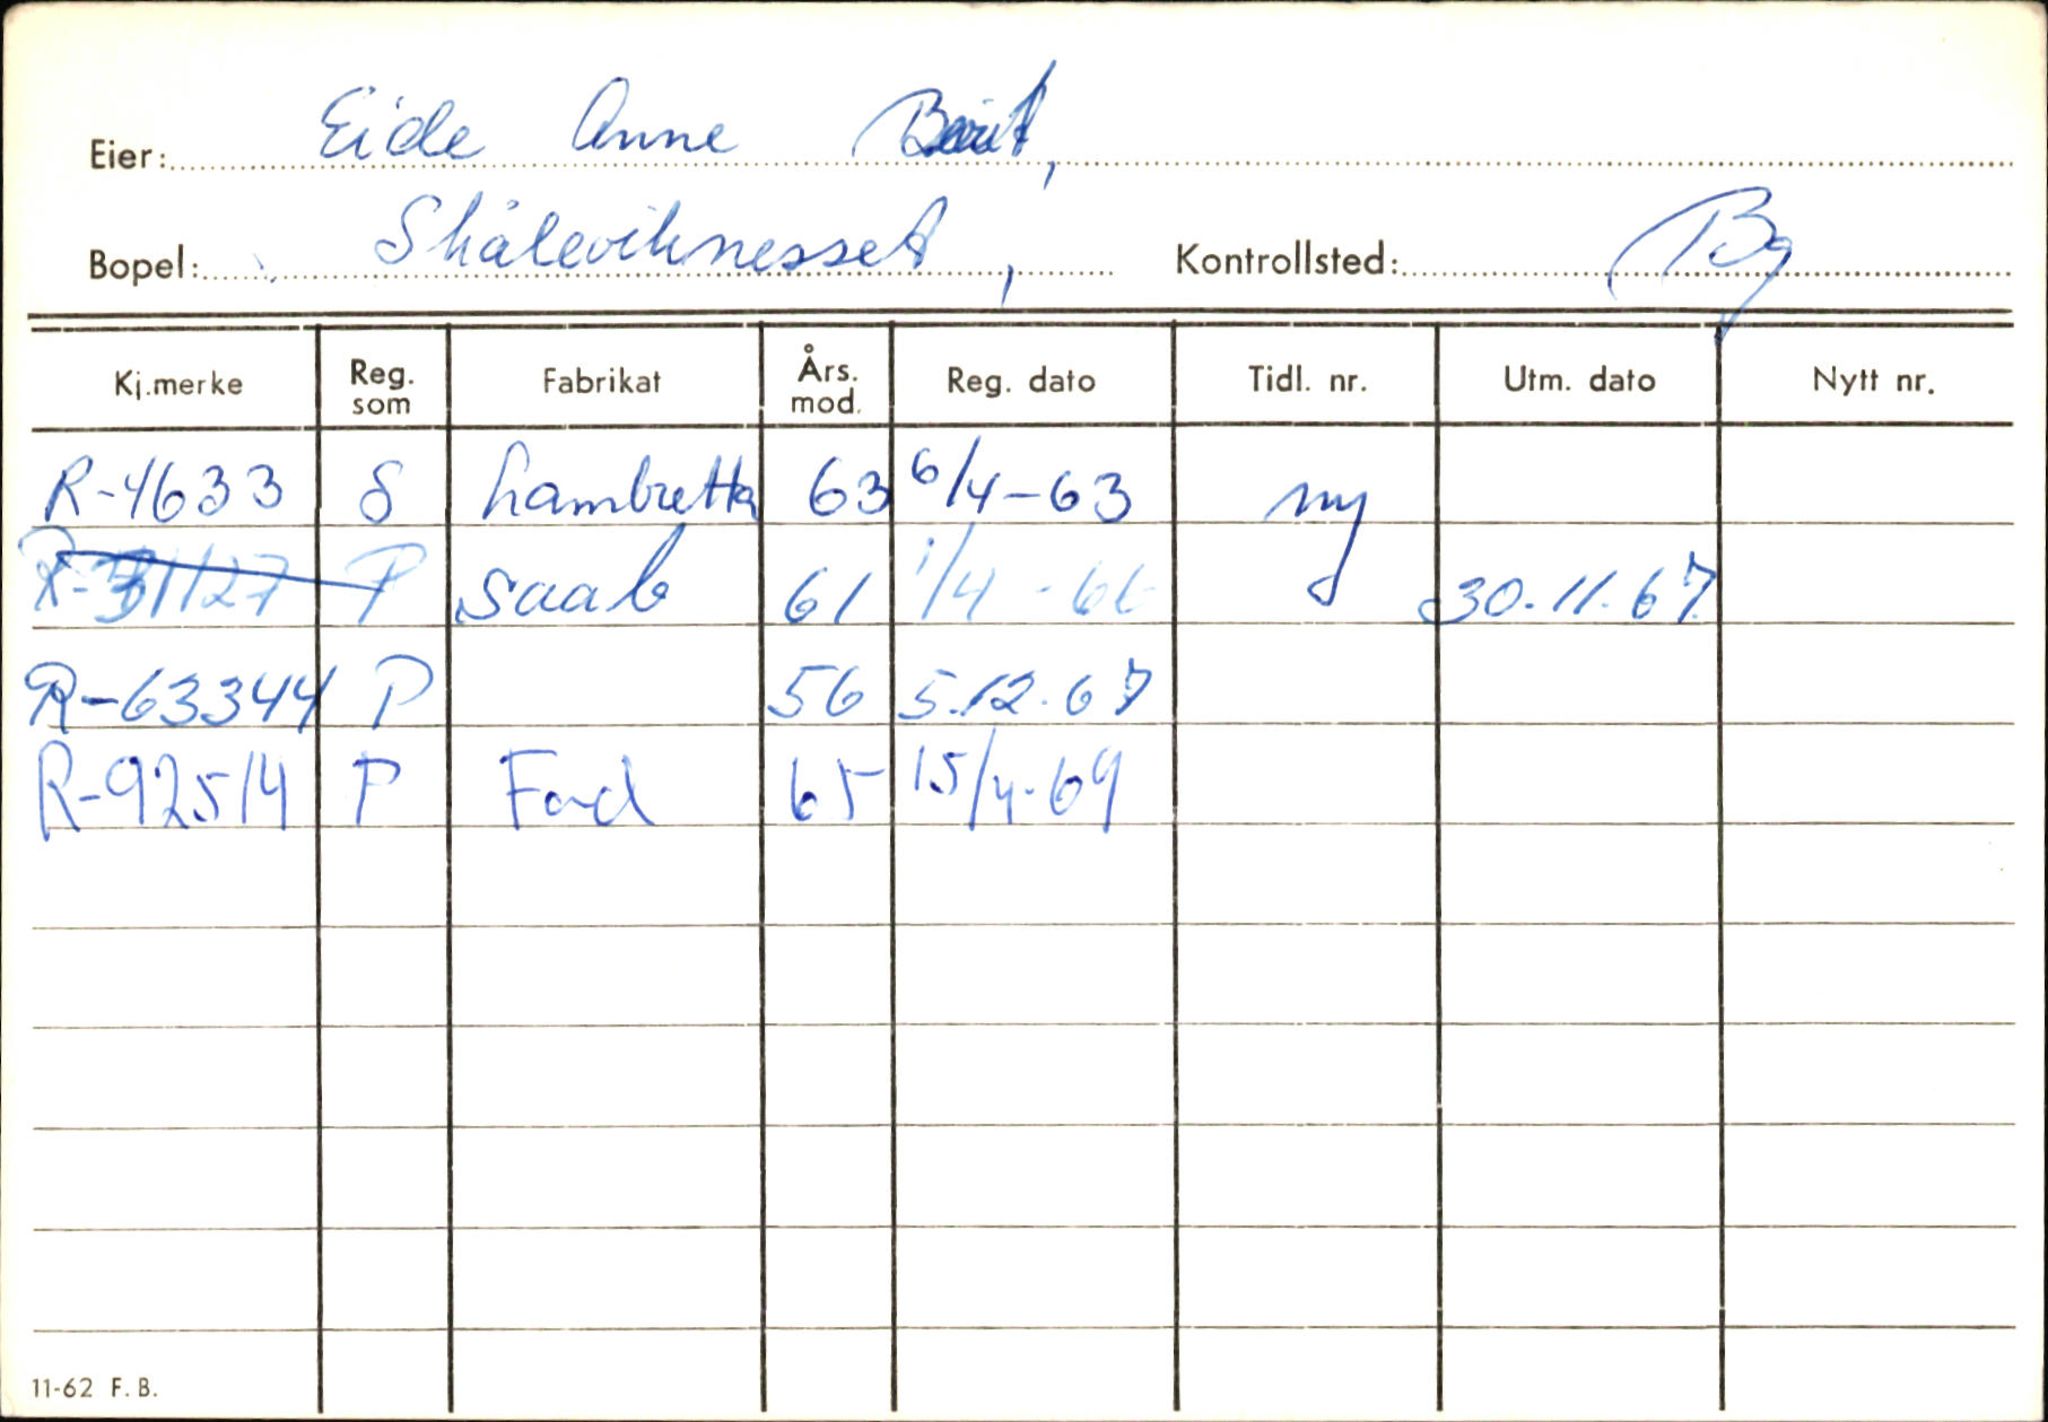 Eier: Eide Anne Berit,
Bopel: Skåleviknesset, Kontrollsted: Bg
Kj.merke Reg. som Fabrikat Års. mod. Reg. dato Tidl. nr. Utm. dato Nytt nr.
R-4633 S Lambretta 63 6/4-63 ny
R-31127 P Saab 61 1/4-66 30.11.67
R-63344 P 56 5.12.67
R-92514 P Ford 65 15/4-69
11-62 F. B.